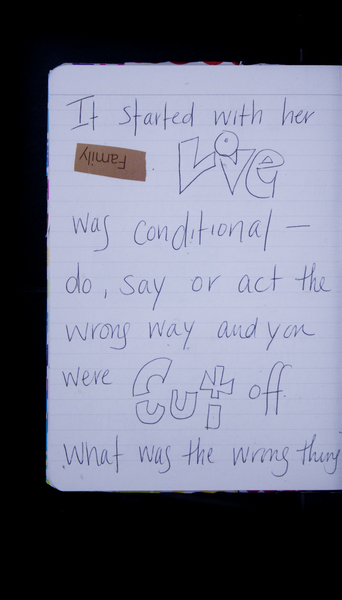 It started with her
Family. Live
was conditional —
do, say or act the
wrong way and you
were Cut off.
What was the wrong thing